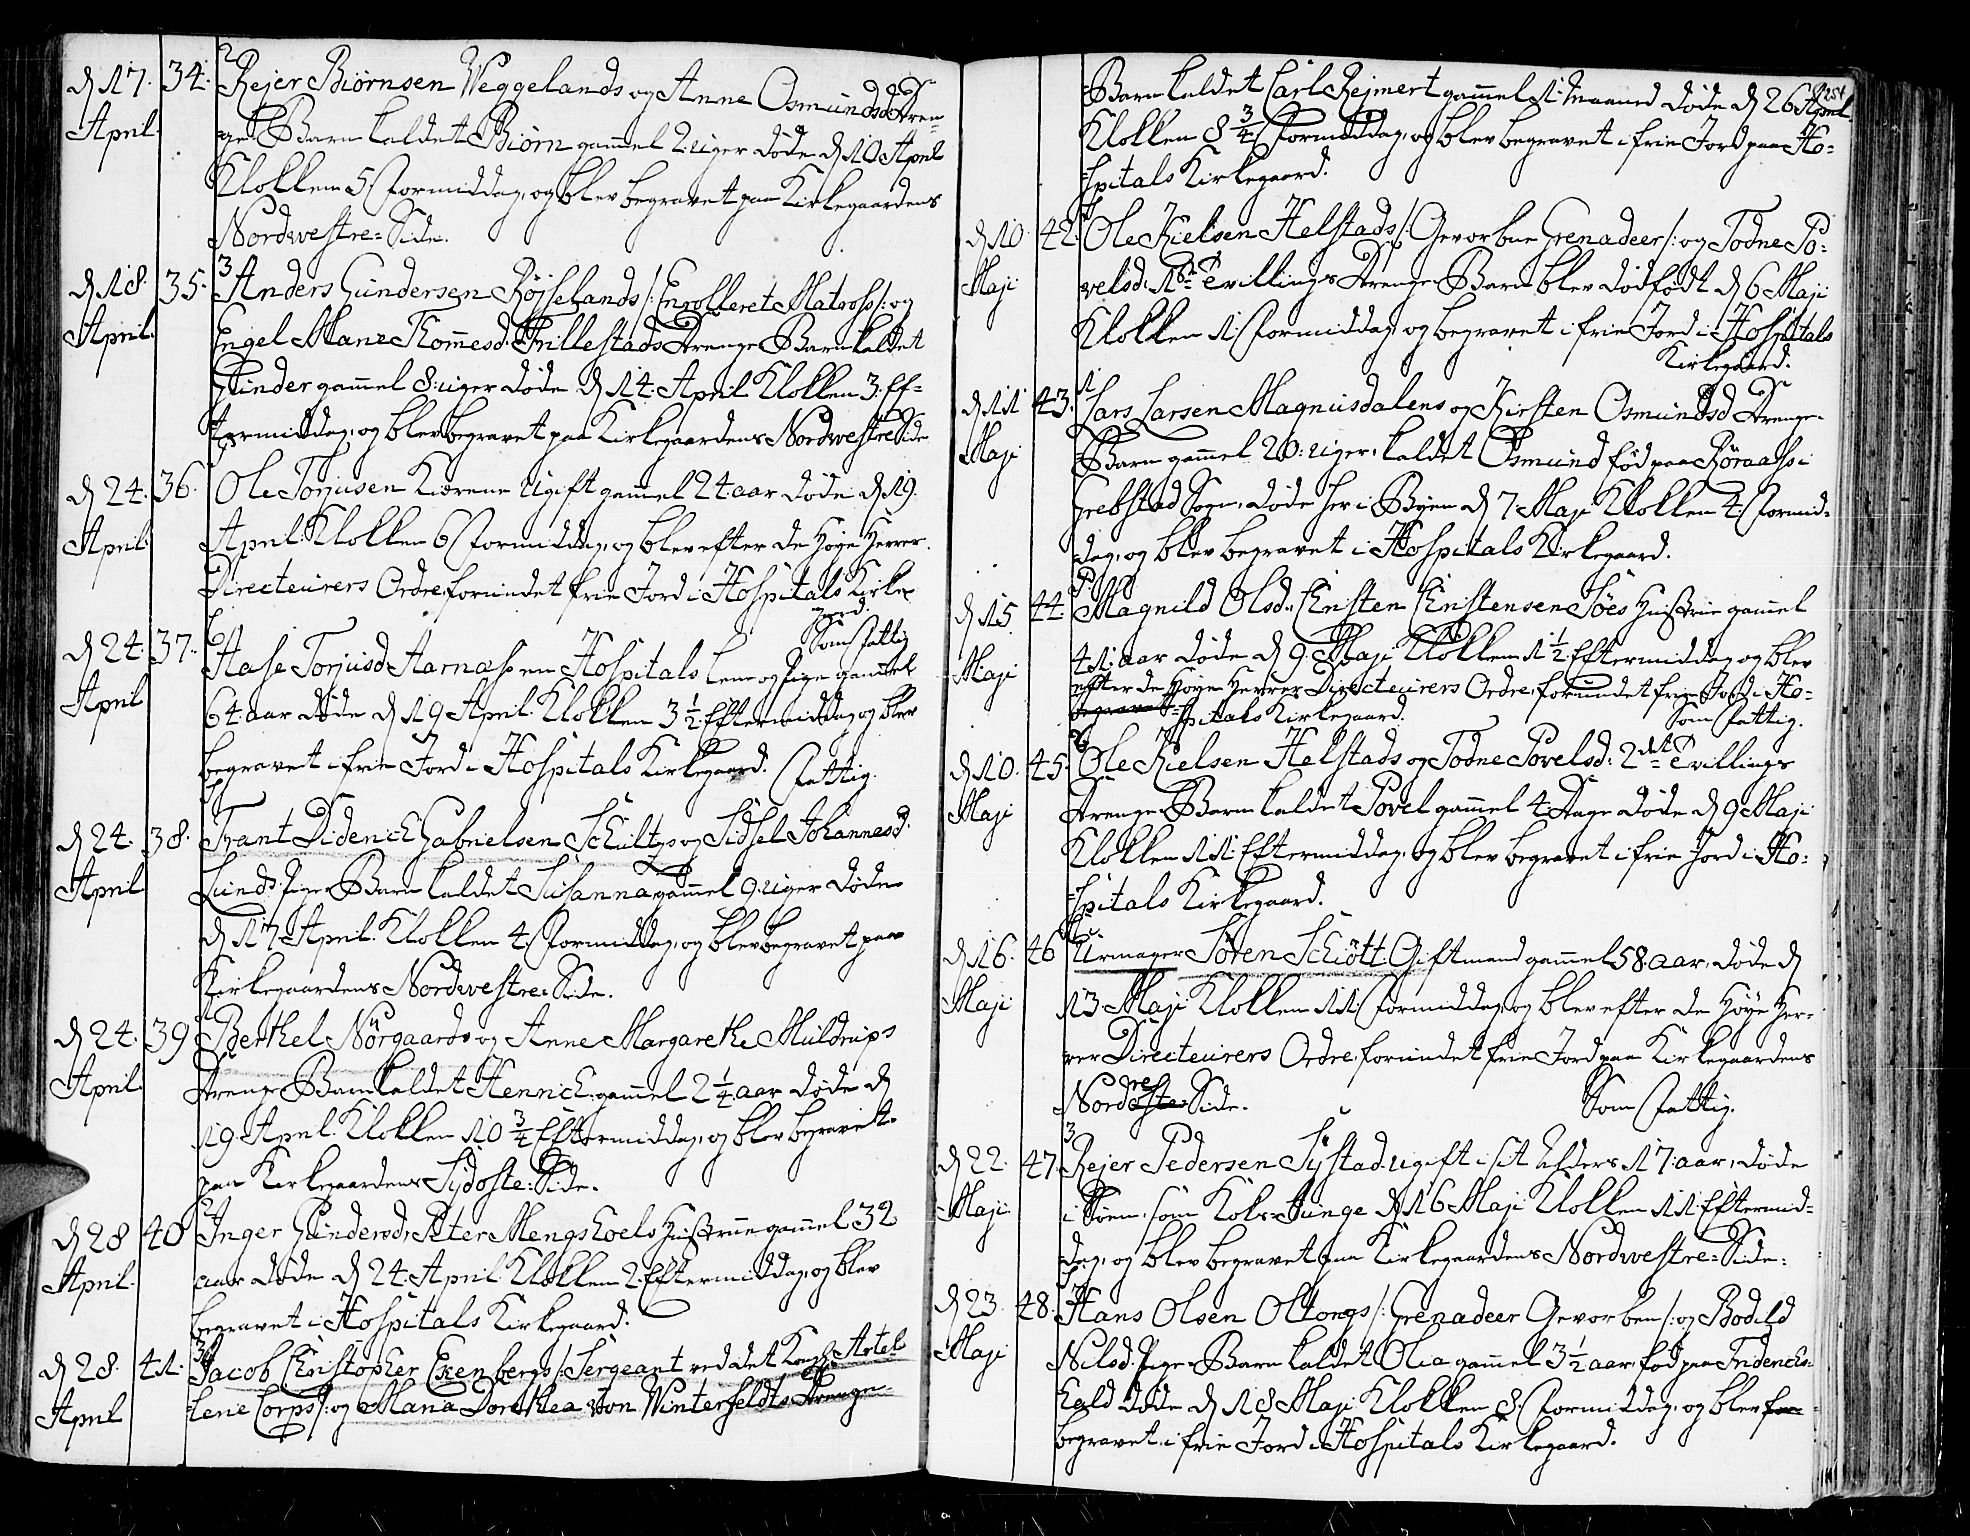 d 17. 34. Rejer Biørnsen Weggelands og Anne Osmundsd. Dren-
April. ge Barn kaldet Biørn gammel 2 uger døde d 10 April
Klokken 5 Formiddag, og blev begravet paa Kirkegaardens
Nordwestre-Side.
d 18. 35. Anders Gundersen Røjselands /: Enrolleret Matros :/ og
April. Engel Marie Thommesd. Trillestads Drenge Barn kaldet
Gunder gammel 8: uger døde d 14. April Klokken 3. Ef-
termiddag, og blev begravet paa Kirkegaardens Nordwestre Side
d 24. 36. Ole Torjusen Kierene Ugift gammel 24 aar døde d 19.
April. April. Klokken 6 Formiddag, og blev efter de Høye Herrer
Directeurers Ordre forundet frie Jord i Hospitals Kirke-
gaard.
Som Fattig
d 24. 37. Aase Torjusd. Aarnæs en Hospitals Lem og Pige gammel
April 64: aar døde d 19 April. Klokken 3 1/2 Eftermiddag og blev
begravet i frie Jord i Hospitals Kirkegaard. Fattig.
d 24. 38. Frant Diderich Gabrielsen Schultz og Sidsel Johannesd.
April Lunds Pige Barn kaldet Susanna gammel 9. uger døde
d 17 April. Klokken 4. Formiddag, og blev begravet paa
Kirkegaardens Nordwestre Side.
d 24. 39 Berthel Nørgaards og Anne Margarethe Muldrups
April. Drenge Barn kaldet Henrich: gammel 2 1/4 aar døde d
19. April. Klokken 10 3/4 Eftermiddag, og blev begravet
paa Kirkegaardens Sydoste: Side.
d 28 40 Inger Gundersd. Peter Mengshoels Hustrue gammel 32
April. aar døde d 24. April Klokken 2. Eftermiddag, og blev
begravet i Hospitals Kirkegaard.
d 28. 41. Jacob Christopher Exenbergs /: Sergeant ved det Kongl. Artel
April lerie Corps :/ og Maria Dorothea von Winterfeldts Drenge-
254
Barn kaldet Carl Rejmert gammel 1: Maaned døde d 26 April
Klokken 8 3/4 Formiddag, og blev begravet i frie Jord paa Ho-
spitals Kirkegaard.
d 10. 42. Ole Kielsen Helstads /: Gevorbne Grenadeer :/ og Todne Po-
Maji velsd. 1ste Tvillings Drenge Barn blev dødfødt d 6 Maji
Klokken 1 Formiddag, og begravet i frie Jord i Hospitals
Kirkegaard.
d 11 43. Lars Larsen Magnusdalens og Kirsten Osmundsd Drenge-
Maji Barn gammel 20: uger, kaldet Osmund fød paa Røraas i
Greibstad Sogn, døde her i Byen d 7 Maji Klokken 4. Formid-
dag, og blev begravet i Hospitals Kirkegaard.
d 15 44. Magnild Olsd. Christen Christensen Søes Hustrue gammel
Maji 41: aar døde d 9. Maji Klokken 1 1/2 Eftermiddag og blev
efter de Høye Herrer Directeurers Ordre, forundet frie Jord i Ho-
begravet spitals Kirkegaard. Som Fattig.
d 10. 45. Ole Kielsen Helstads og Todne Povelsd: 2det Tvillings
Maji Drenge Barn kaldet Povel gammel 4: Dage døde d 9 Maji
Klokken 11: Eftermiddag, og blev begravet i frie Jord i Ho-
spitals Kirkegaard.
d 16. 46 Urmager Søren Schiøtt. Giftmand gammel 58. aar, døde d
Maji 13 Maji Klokken 11 Formiddag, og blev efter de Høye Her-
rer Directeurers Ordre, forundet frie Jord paa Kirkegaardens
Nordostre Side. Som Fattig.
d 22. 47. Rejer Pedersen Systad. ugift i sit Alders 17: aar, døde
Maji i Søen, som Koks Dunge d 16 Maji Klokken 11. Eftermid-
dag, og blev begravet paa Kirkegaardens Nordwestre-Side.
d 23. 48. Hans Olsen Oltorgs /: Grenadeer Gevorben :/ og Bodild
Maji Nilsd. Pige Barn kaldet Olia gammel 3 1/2 aar, fød paa Friderichs-
hald døde d 18 Maji Klokken 8. Formiddag, og blev for-
begravet, i frie Jord i Hospitals Kirkegaard.